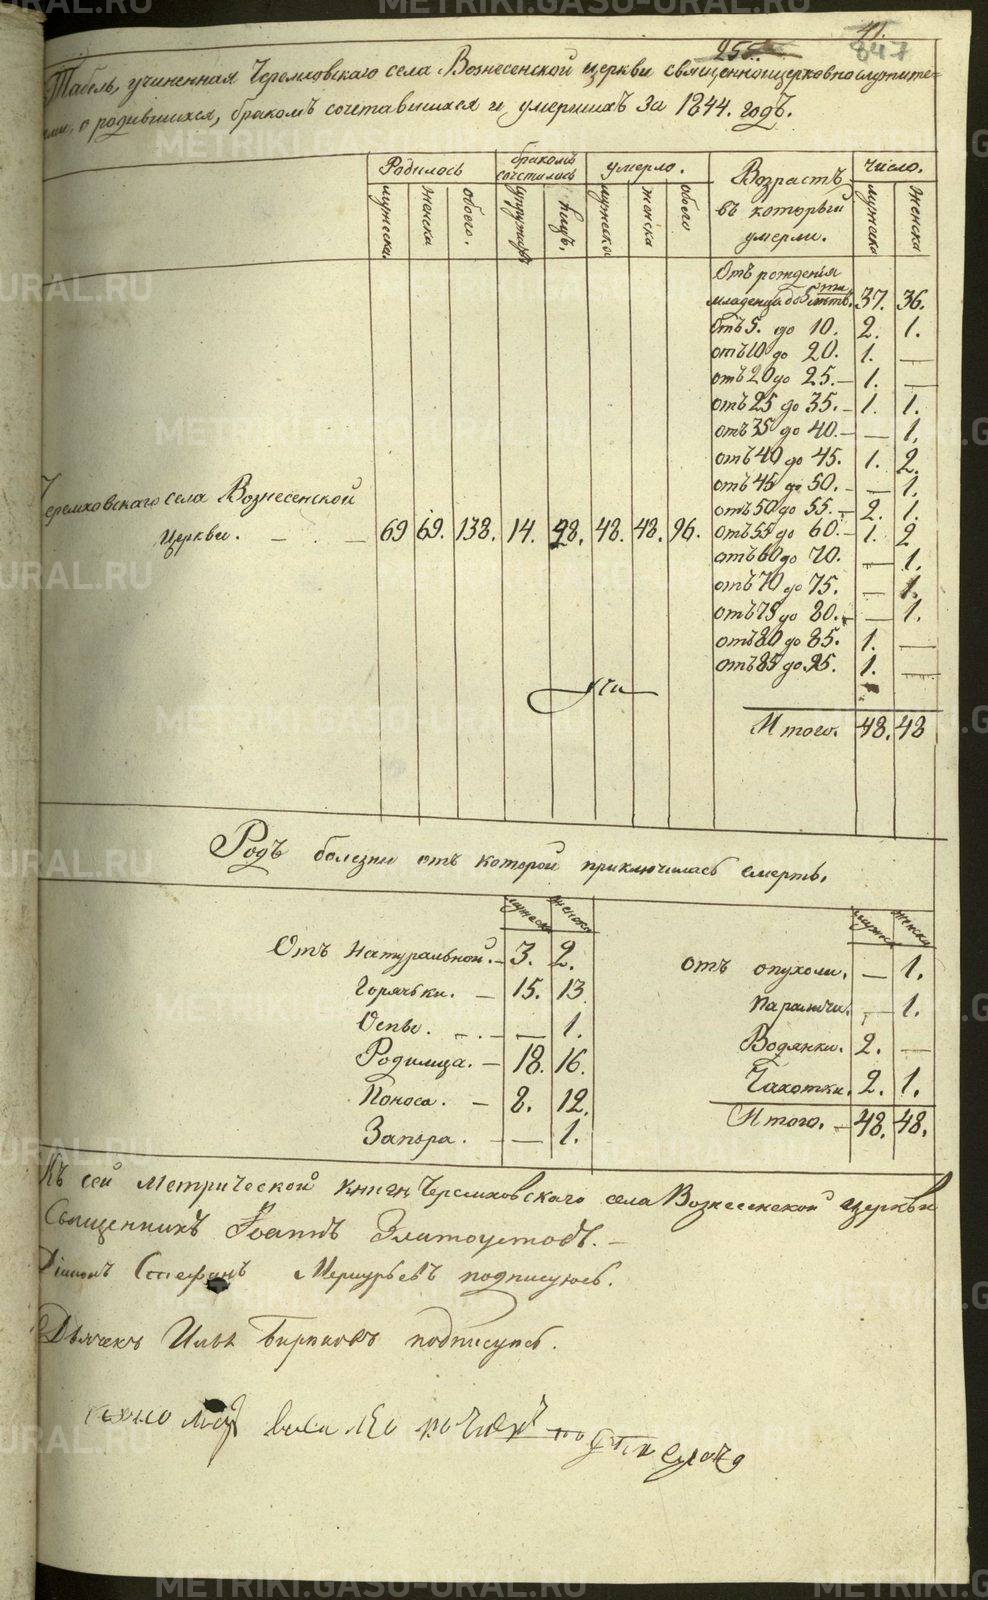 41.
255. 847
Табель, учиненная Черемховскаго села Вознесенской церкви священноцерковнослужите-
ми, о родившихся, бракомъ сочетавшихся и умершихъ за 1844. годъ.
Родилось бракомъ сочетались умерло. Возрастъ въ который умерли. число.
мужеска женска обоего. супружествъ лицъ. мужеска женска обоего мужска женска
Отъ рождения
младенца до 5ти летъ. 37. 36.
отъ 5. до 10. 2. 1.
отъ 10 до 20. 1. —
отъ 20 до 25. — 1. —
отъ 25 до 35. — 1. 1.
отъ 35 до 40. — — 1.
отъ 40 до 45. 1. 2.
отъ 45 до 50. — — 1.
отъ 50 до 55. — 2. 1.
Черемховскаго села Вознесенской
церкви. — — 69 69. 138. 14. 28. 48. 48. 96. отъ 55 до 60. — 1. 2
отъ 60 до 70. — 1.
отъ 70 до 75. — 1.
отъ 75 до 80. — — 1.
отъ 80 до 85. 1. —
отъ 85 до 95. 1. —
Итого. 48. 48
Родъ болезни отъ которой приключилась смерть.
мужеска женска мужска женска
Отъ натуральной. — 3. 2. отъ опухоли. — 1.
Горячки. — 15. 13 Параличи. — 1.
Оспы. — — 1. Водянки. 2. —
Родимца. — 18. 16. Чахотки. 2. 1.
Поноса. — 8. 12. Итого. — 48. 48.
Запора. — — 1.
Къ сей Метрической книги Черемховскаго села Вознесенской церкви
Священникъ Иоаннъ Златоустовъ. —
Диаконъ Стефанъ Меркурьевъ подписуюсь.
Дьячекъ Илья подписуюсь.
METRIKI.GASU-URAL.RU